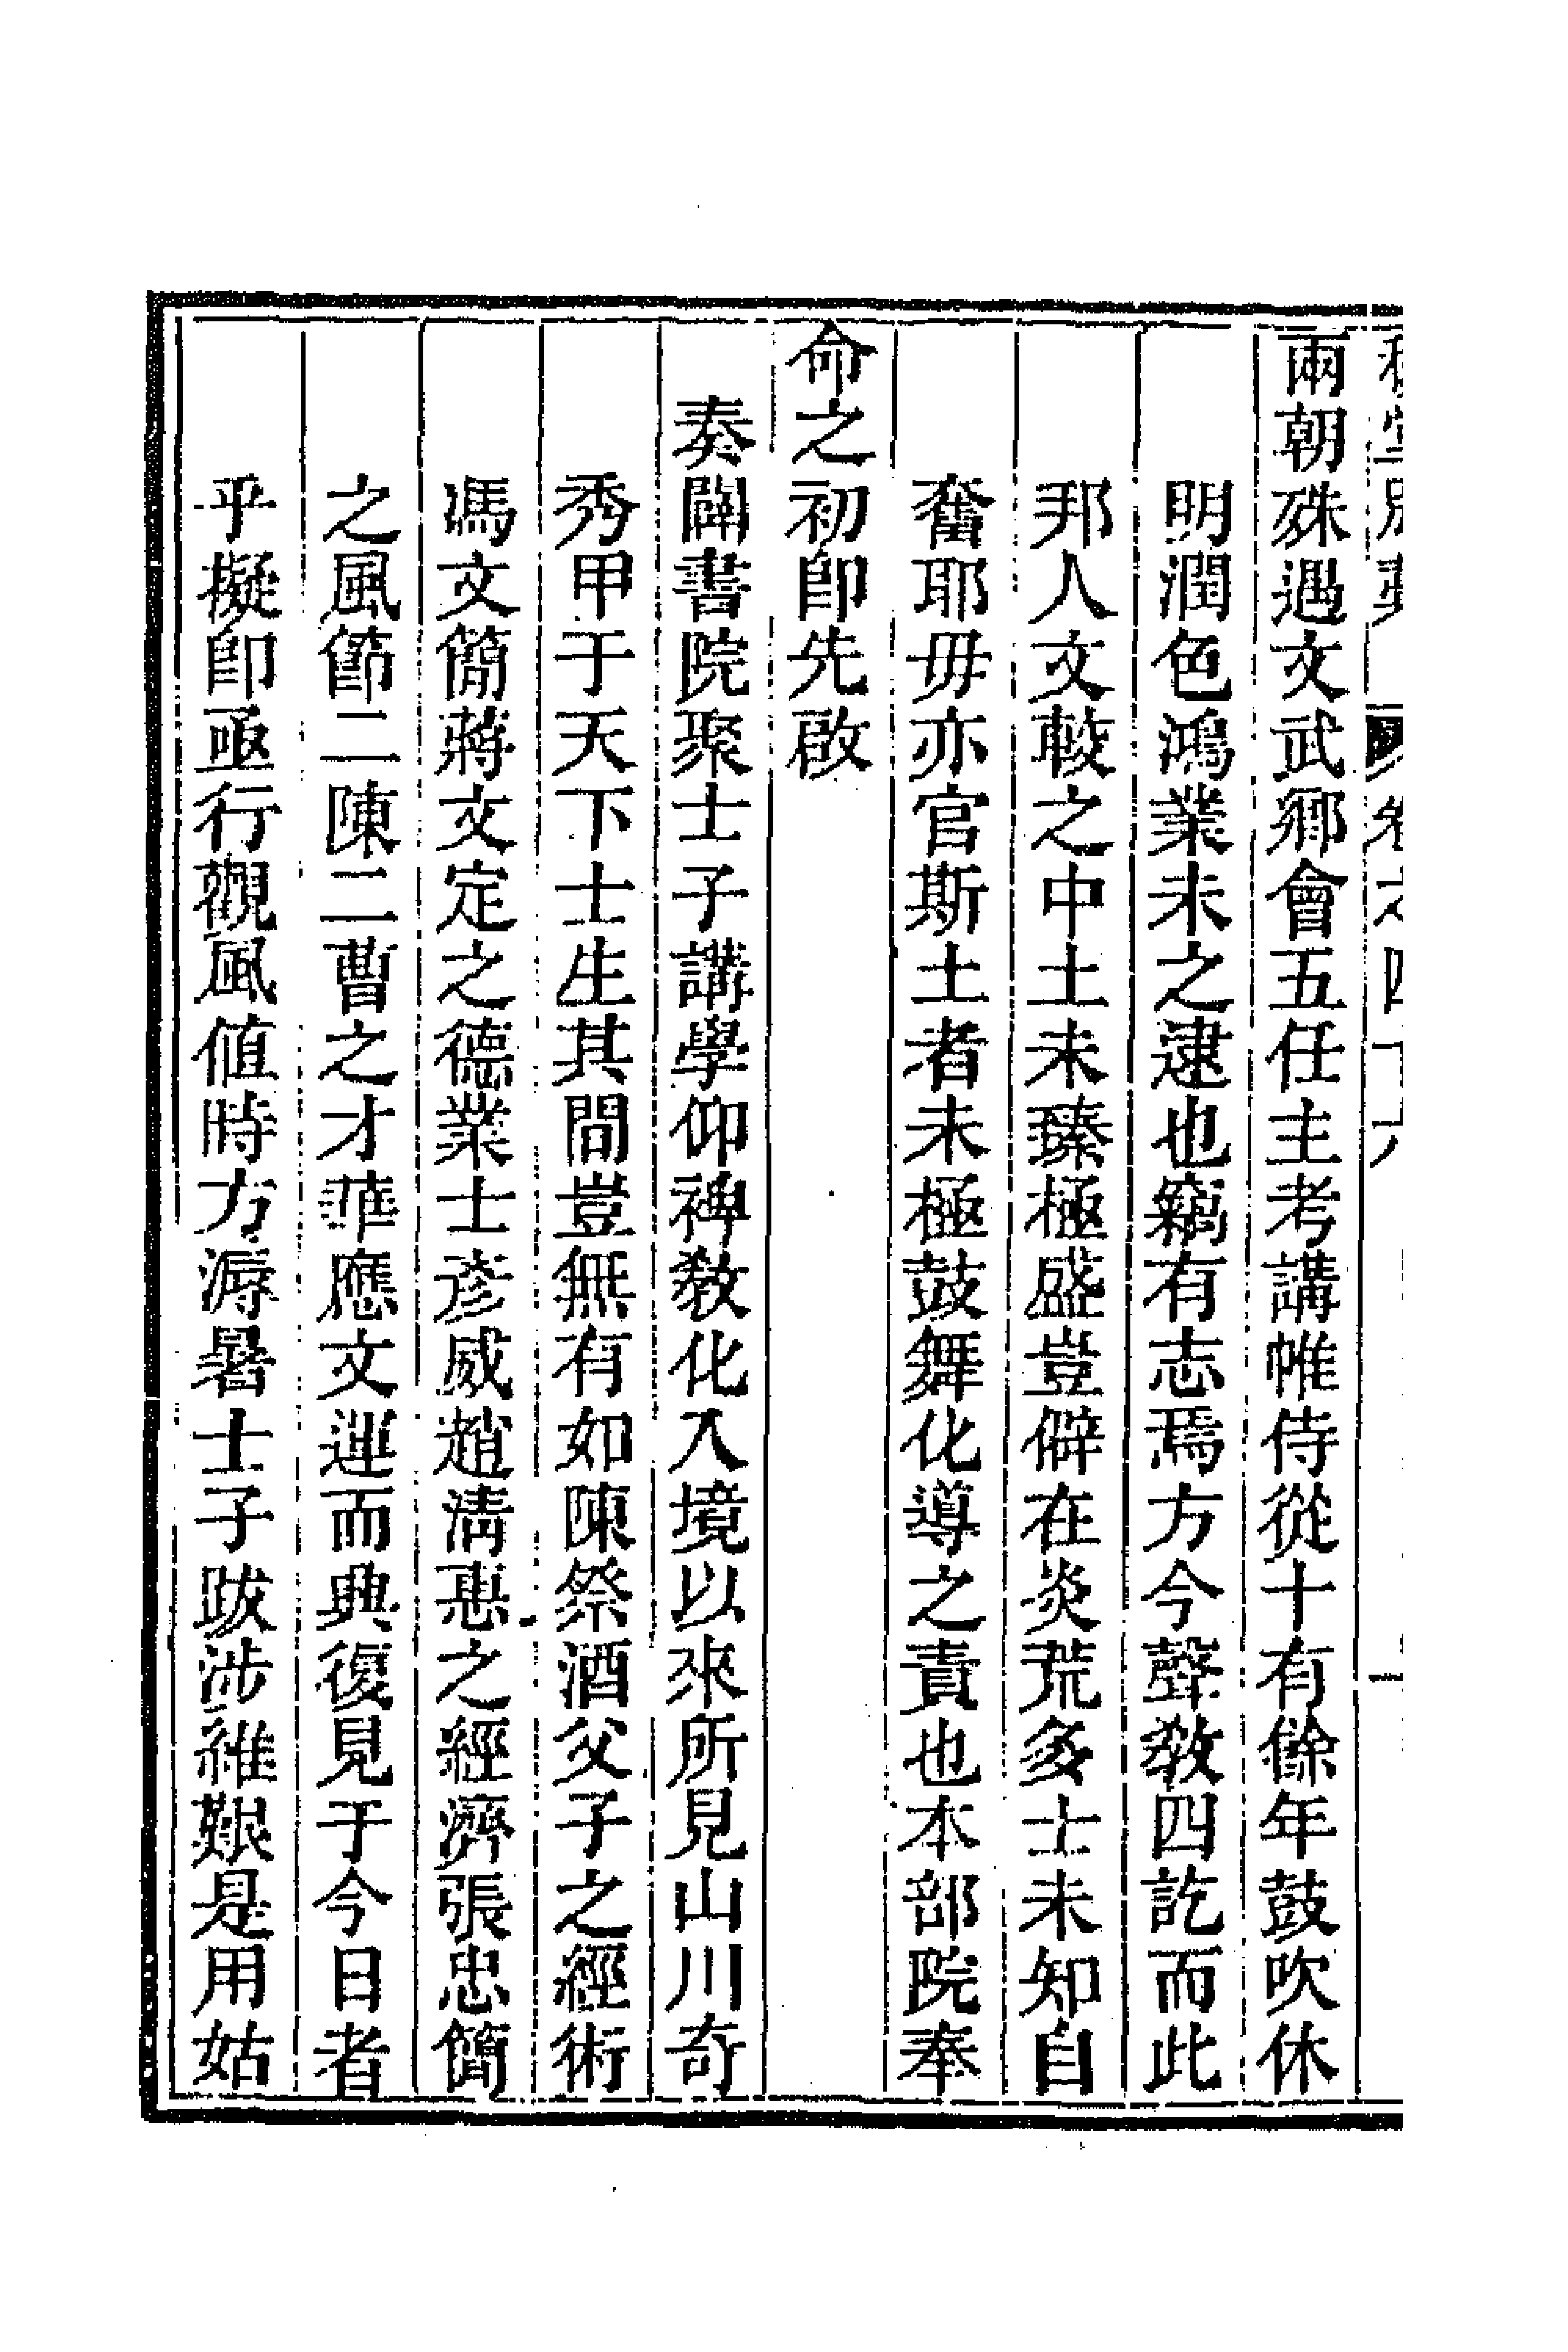 兩朝殊遇文武鄉會五任主考講帷侍從十有餘年鼓吹休
明潤色鴻業未之逮也竊有志焉方今聲敎四訖而此
邦人文較之中土未臻極盛豈僻在炎荒多士未知自
奮耶毋亦官斯土者未極鼓舞化導之責也本部院奉
命之初卽先啟
奏闢書院聚士子講學仰裨敎化入境以來所見山川奇
秀甲于天下士生其間豈無有如陳祭酒父子之經術
馮文簡蔣文定之德業士彥威趙淸惠之經濟張忠簡
之風節二陳二曹之才華應文運而興復見于今日者
乎擬卽亟行觀風値時方溽暑士子跋涉維艱是用姑